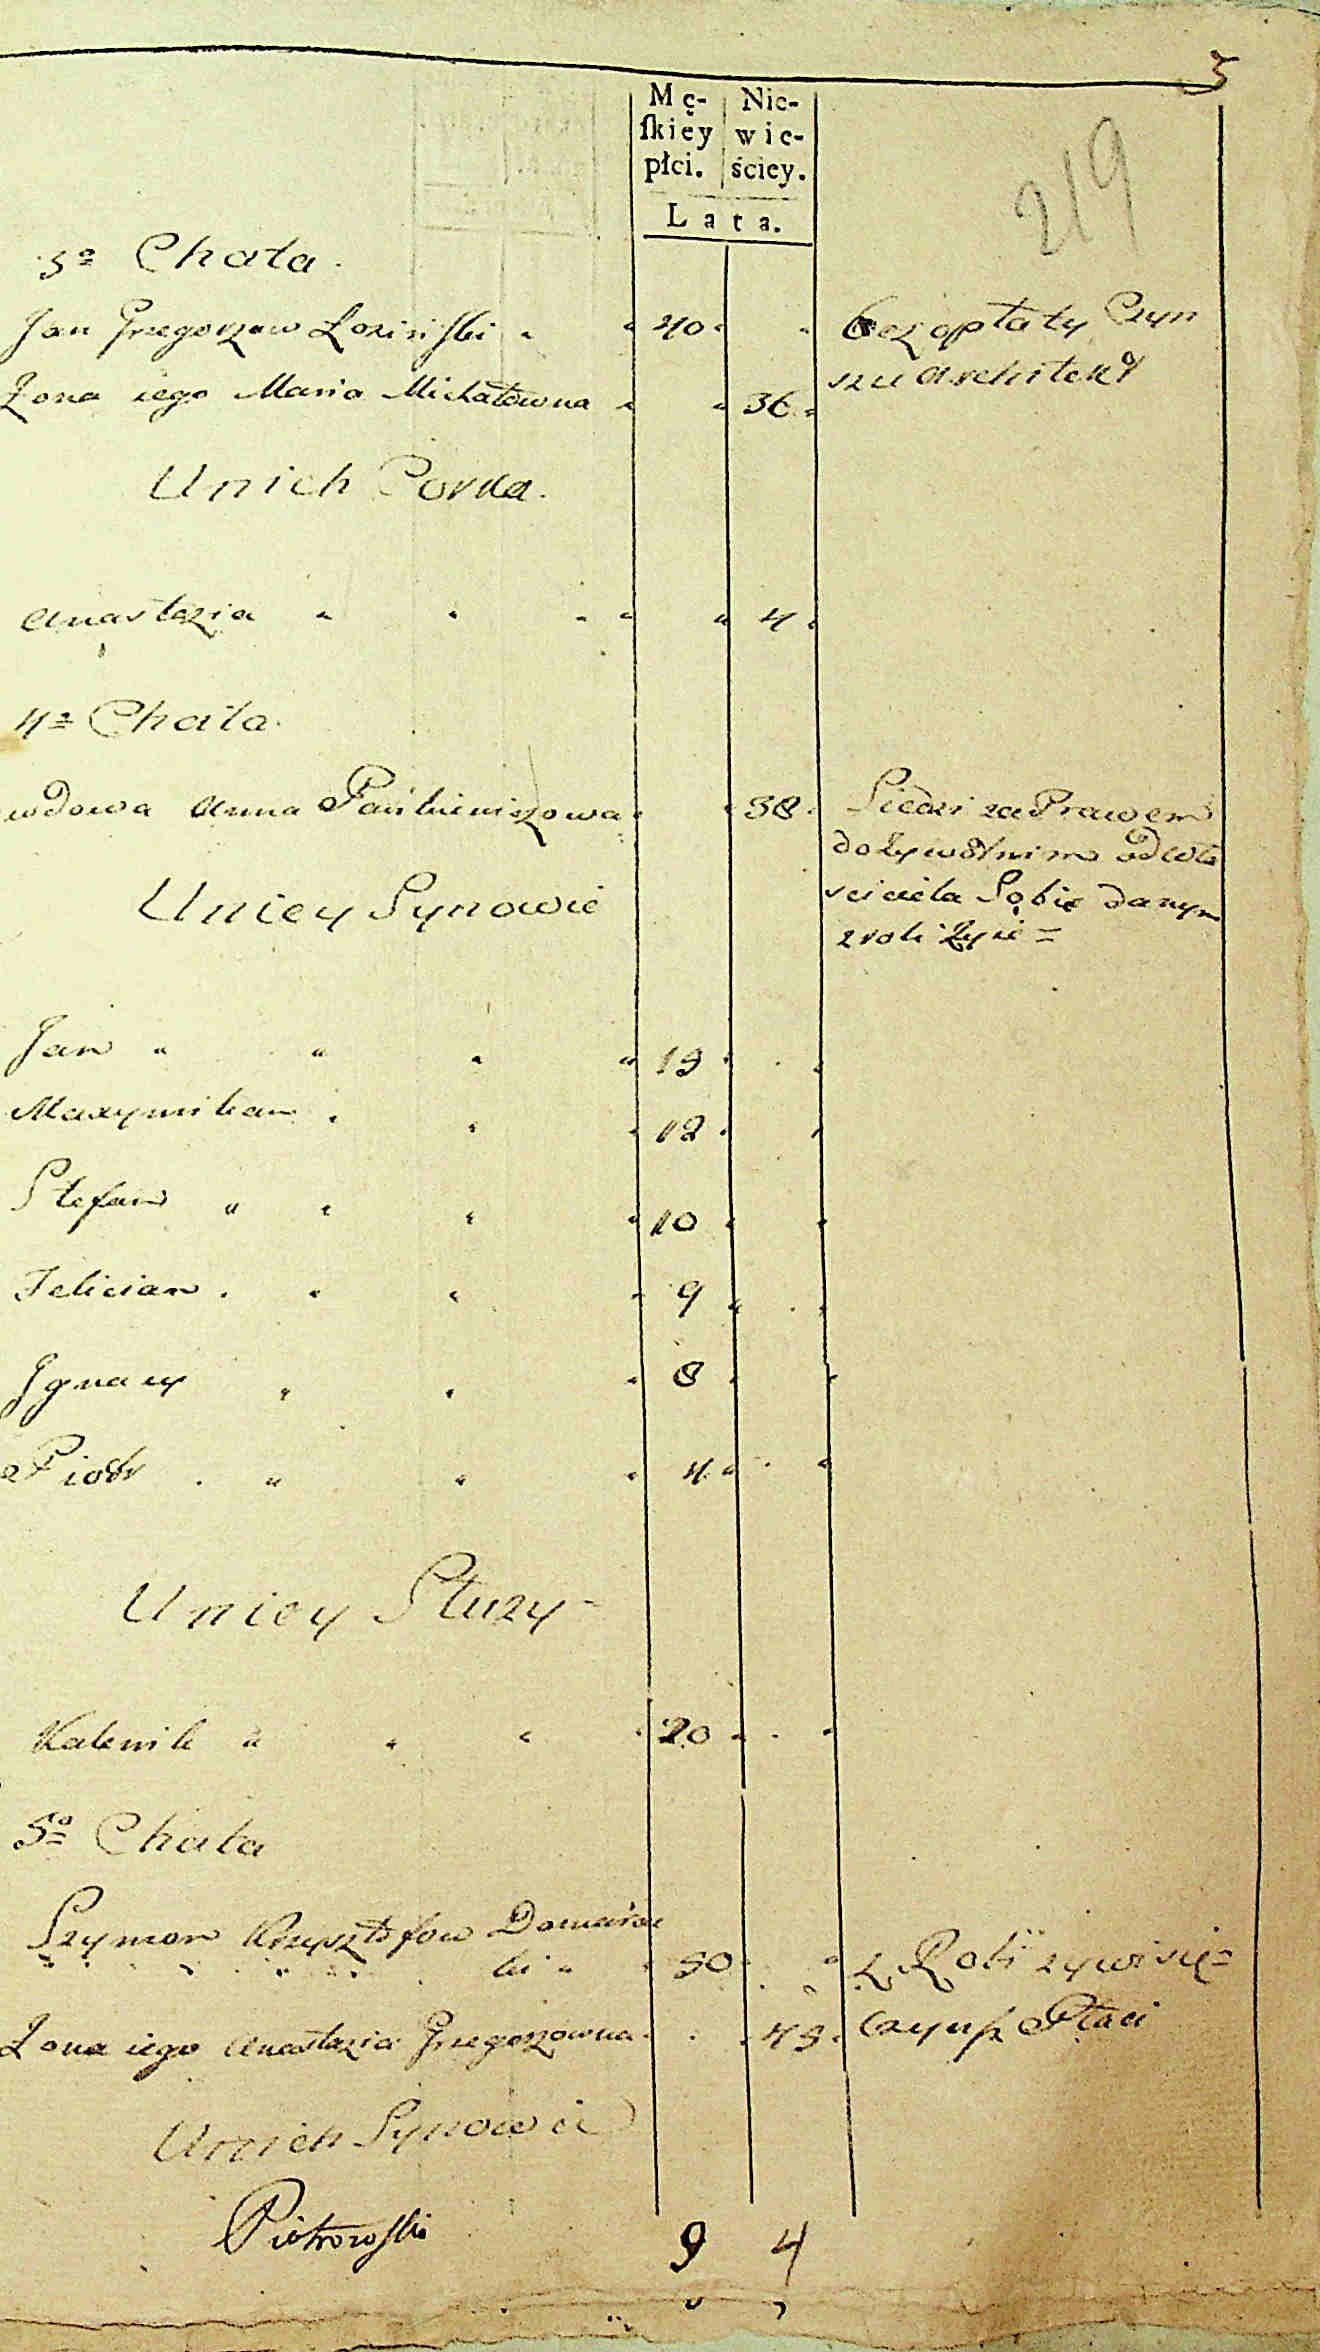 5
Mę-
ſkiey
płci.
Nie-
wie-
ściey.
Lata.
219
3a Chata.
Jan Grzegorzow Łoziński " " 40 "
bez opłaty Czyn
szu architekt
Żona iego Maria Michałowna " " 36 "
Unich Corka.
Anastazia " " " " " 4 "
4a Chata.
wdowa Anna Pańkiewiczowa " 38 "
Siedzi za Prawem
dożywotnim od wła
sciciela Sobie danym
z roli żyie =
Uniey Synowie
Jan " " " " 19
Maxymilian " " " 12
Stefan " " " " 10
Felician " " " 9
Jgnacy " " " 8
Piotr " " " 4
Uniey Słuzy
Kalenik " " " 20
5a Chata
Szymon Krzysztofow Domańsk
ki " 50
z Roli zywi się =
Żona iego Anastazia Grzegorzowna " 49
Czynsz Płaci
Unich Synowie
Piotrowski
9 4